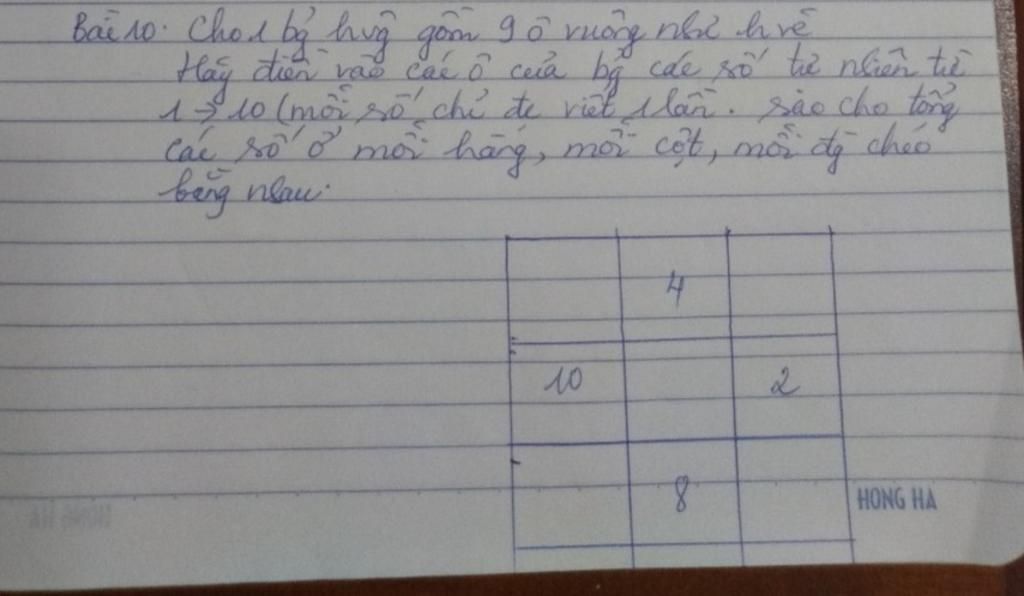 Bài 10. Cho 1 bg̉ hvg gồm 9 ô vuông như h vẽ
Hãy điền vào các ô của bg̉ các số tự nhiên từ
1 → 10 (mỗi số chỉ đc viết 1 lần. sao cho tổng
các số ở mỗi hàng, mỗi cột, mỗi đg chéo
bằng nhau.
4
10 2
8
HONG HA